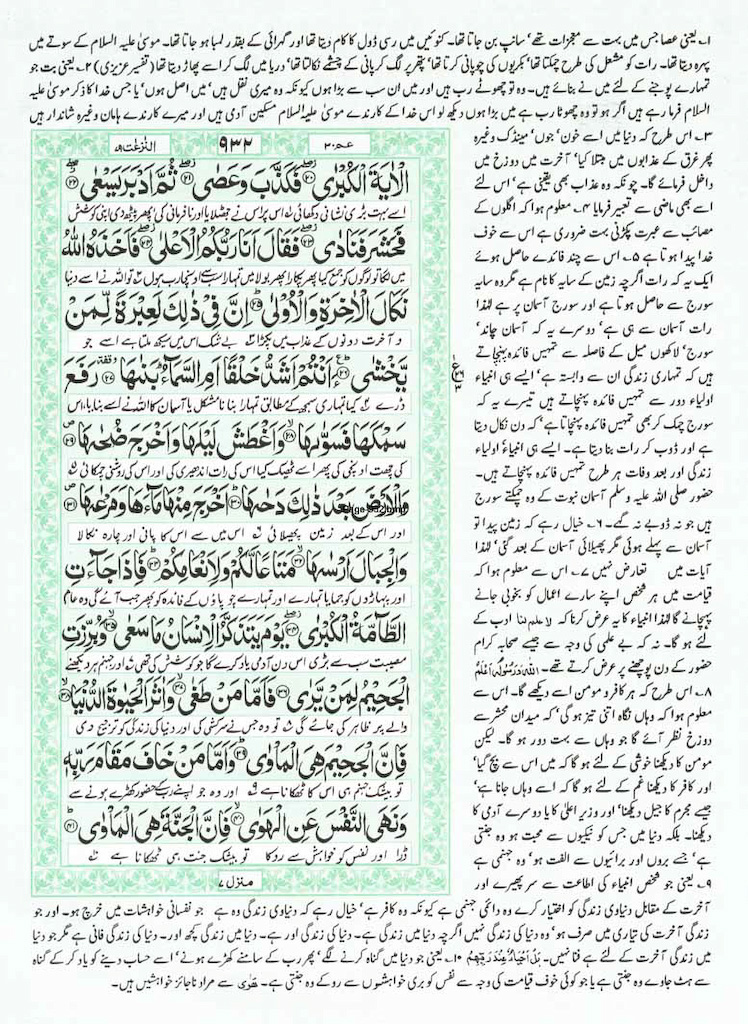 ۱۔ یعنی عصا جس میں بہت سے معجزات تھے‘ سانپ بن جاتا تھا۔ کنوئیں میں رسی ڈول کا کام دیتا تھا اور گہرائی کے بقدر لمبا ہو جاتا تھا۔ موسیٰ علیہ السلام کے سوتے میں
پہرہ دیتا تھا۔ رات کو مشعل کی طرح چمکتا تھا‘ بکریوں کی چوپانی کرتا تھا‘ پتھر پر لگ کر پانی کے چشمے نکالتا تھا‘ دریا میں لگ کر اسے پھاڑ دیتا تھا (تفسیر عزیزی) ۲۔ یعنی بت جو
تمہارے پوجنے کے لئے میں نے بنائے ہیں۔ وہ تو چھوٹے رب ہیں اور میں ان سب سے بڑا ہوں کیونکہ وہ میری نقل ہیں‘ میں اصل ہوں‘ یا جس خدا کا ذکر موسیٰ علیہ
السلام فرما رہے ہیں اگر ہو تو وہ چھوٹا رب ہے میں بڑا ہوں دیکھ لو اس خدا کے کارندے موسیٰ علیہ السلام مسکین آدمی ہیں اور میرے کارندے ہامان وغیرہ شاندار ہیں
۳۔ اس طرح کہ دنیا میں اسے خون‘ جوں‘ مینڈک وغیرہ
پھر غرق کے عذابوں میں مبتلا کیا‘ آخرت میں دوزخ میں
داخل فرمائے گا۔ چونکہ وہ عذاب بھی یقینی ہے‘ اس لئے
اسے بھی ماضی سے تعبیر فرمایا ۴۔ معلوم ہوا کہ اگلوں کے
مصائب سے عبرت پکڑنی بہت ضروری ہے اس سے خوف
خدا پیدا ہوتا ہے ۵۔ اس سے چند فائدے حاصل ہوئے
ایک یہ کہ رات اگرچہ زمین کے سایہ کا نام ہے مگر وہ سایہ
سورج سے حاصل ہوتا ہے اور سورج آسمان پر ہے لہٰذا
رات آسمان سے ہی ہے‘ دوسرے یہ کہ آسمان چاند‘
سورج‘ لاکھوں میل کے فاصلہ سے تمہیں فائدہ پہنچاتے
ہیں کہ تمہاری زندگی ان سے وابستہ ہے‘ ایسے ہی انبیاء
اولیاء دور سے تمہیں فائدہ پہنچاتے ہیں تیسرے یہ کہ
سورج چمک کر بھی تمہیں فائدہ پہنچاتا ہے‘ کہ دن نکال دیتا
ہے اور ڈوب کر رات بنا دیتا ہے۔ ایسے ہی انبیاء اولیاء
زندگی اور بعد وفات ہر طرح تمہیں فائدہ پہنچاتے ہیں۔
حضور صلی اللہ علیہ وسلم آسمان نبوت کے وہ چمکتے سورج
ہیں جو نہ ڈوبے نہ گہے۔ ۶۔ خیال رہے کہ زمین پیدا تو
آسمان سے پہلے ہوئی مگر پھیلائی آسمان کے بعد گئی‘ لہٰذا
آیات میں تعارض نہیں ۷۔ اس سے معلوم ہوا کہ
قیامت میں ہر شخص اپنے سارے اعمال کو بخوبی جانے
پہچانے گا لہٰذا انبیاء کا یہ عرض کرنا کہ لا علم لنا ادب کے
لئے ہو گا۔ نہ کہ بے علمی کی وجہ سے جیسے صحابہ کرام
حضور کے دن پوچھنے پر عرض کرتے تھے۔ اَللّٰہُ وَرَسُوْلُہٗ اَعْلَمُ
۸۔ اس طرح کہ ہر کافر و مومن اسے دیکھے گا۔ اس سے
معلوم ہوا کہ وہاں نگاہ اتنی تیز ہو گی‘ کہ میدان محشر سے
دوزخ نظر آئے گا جو وہاں سے بہت دور ہو گا۔ لیکن
مومن کا دیکھنا خوشی کے لئے ہو گا کہ میں اس سے بچ گیا‘
اور کافر کا دیکھنا غم کے لئے ہو گا کہ اسے وہاں جانا ہے‘
جیسے مجرم کا جیل دیکھنا‘ اور وزیر اعلیٰ کا یا دوسرے آدمی کا
دیکھنا۔ بلکہ دنیا میں جس کو نیکیوں سے محبت ہو وہ جنتی
ہے‘ جسے بروں اور برائیوں سے الفت ہو‘ وہ جہنمی ہے
۹۔ یعنی جو شخص انبیاء کی اطاعت سے سر پھیرے اور
النّٰزعٰت ۷۹ ۹۳۲ عم ۳۰
الْاٰیَةَ الْكُبْرٰى ﴿۲۰﴾ فَكَذَّبَ وَعَصٰى ﴿۲۱﴾ ثُمَّ اَدْبَرَ یَسْعٰى ﴿۲۲﴾
اسے بہت بڑی نشانی دکھائی اس پر اس نے جھٹلایا اور نافرمانی کی پھر پیٹھ دی اپنی کوشش
فَحَشَرَ فَنَادٰى ﴿۲۳﴾ فَقَالَ اَنَا رَبُّكُمُ الْاَعْلٰى ﴿۲۴﴾ فَاَخَذَهُ اللّٰهُ
میں لگا تو لوگوں کو جمع کیا پھر پکارا پھر بولا میں تمہارا سب سے اونچا رب ہوں تو اللہ نے اسے دنیا
نَكَالَ الْاٰخِرَةِ وَالْاُوْلٰى ﴿۲۵﴾ اِنَّ فِیْ ذٰلِكَ لَعِبْرَةً لِّمَنْ
و آخرت دونوں کے عذاب میں پکڑا بے شک اس میں سیکھ ملتا ہے اسے جو
یَّخْشٰى ﴿۲۶﴾ ءَاَنْتُمْ اَشَدُّ خَلْقًا اَمِ السَّمَآءُ بَنٰىهَا ﴿۲۷﴾ رَفَعَ
ڈرے کیا تمہاری سمجھ کے مطابق تمہارا بنانا مشکل یا آسمان کا اللہ نے اسے بنایا، اس
سَمْكَهَا فَسَوّٰىهَا ﴿۲۸﴾ وَاَغْطَشَ لَیْلَهَا وَاَخْرَجَ ضُحٰىهَا ﴿۲۹﴾
کی چھت اونچی کی پھر اسے ٹھیک کیا اس کی رات اندھیری کی اور اس کی روشنی چمکائی
وَالْاَرْضَ بَعْدَ ذٰلِكَ دَحٰىهَا ﴿۳۰﴾ اَخْرَجَ مِنْهَا مَآءَهَا وَمَرْعٰىهَا ﴿۳۱﴾
اور اس کے بعد زمین پھیلائی اس میں سے اس کا پانی اور چارہ نکالا
وَالْجِبَالَ اَرْسٰىهَا ﴿۳۲﴾ مَتَاعًا لَّكُمْ وَلِاَنْعَامِكُمْ ﴿۳۳﴾ فَاِذَا جَآءَتِ
اور پہاڑوں کو جمایا تمہارے اور تمہارے چوپاؤں کے فائدہ کو پھر جب آئے گی وہ عام
الطَّآمَّةُ الْكُبْرٰى ﴿۳۴﴾ یَوْمَ یَتَذَكَّرُ الْاِنْسَانُ مَا سَعٰى ﴿۳۵﴾ وَبُرِّزَتِ
مصیبت سب سے بڑی اس دن آدمی یاد کرے گا جو کوشش کی تھی اور جہنم ہر دیکھنے
الْجَحِیْمُ لِمَنْ یَّرٰى ﴿۳۶﴾ فَاَمَّا مَنْ طَغٰى ﴿۳۷﴾ وَاٰثَرَ الْحَیٰوةَ الدُّنْیَا ﴿۳۸﴾
والے پر ظاہر کی جائے گی تو وہ جس نے سرکشی کی اور دنیا کی زندگی کو ترجیح دی
فَاِنَّ الْجَحِیْمَ هِیَ الْمَاْوٰى ﴿۳۹﴾ وَاَمَّا مَنْ خَافَ مَقَامَ رَبِّهٖ
تو بیشک جہنم ہی اس کا ٹھکانا ہے اور وہ جو اپنے رب کے حضور کھڑے ہونے سے
وَنَهَى النَّفْسَ عَنِ الْهَوٰى ﴿۴۰﴾ فَاِنَّ الْجَنَّةَ هِیَ الْمَاْوٰى ﴿۴۱﴾
ڈرا اور نفس کو خواہش سے روکا تو بیشک جنت ہی ٹھکانا ہے
منزل ۷
آخرت کے مقابل دنیاوی زندگی کو اختیار کرے وہ دائمی جہنمی ہے کیونکہ وہ کافر ہے‘ خیال رہے کہ دنیاوی زندگی وہ ہے جو نفسانی خواہشات میں خرچ ہو۔ اور جو
زندگی آخرت کی تیاری میں صرف ہو‘ وہ دنیا کی زندگی نہیں اگرچہ دنیا میں زندگی ہے۔ دنیا کی زندگی اور ہے۔ دنیا میں زندگی کچھ اور۔ دنیا کی زندگی فانی ہے مگر جو دنیا
میں زندگی آخرت کے لئے ہے فنا نہیں۔ بَلْ اَحْیَاءٌ عِنْدَ رَبِّهِمْ ۱۰۔ یعنی جو دنیا میں گناہ کرنے لگے‘ پھر رب کے سامنے کھڑے ہونے‘ اسے حساب دینے کو یاد کر کے گناہ
سے ہٹ جاوے وہ جنتی ہے یا جو کوئی خوف قیامت کی وجہ سے نفس کو بری خواہشوں سے روکے وہ جنتی ہے۔ ھَوٰی سے مراد ناجائز خواہشیں ہیں۔